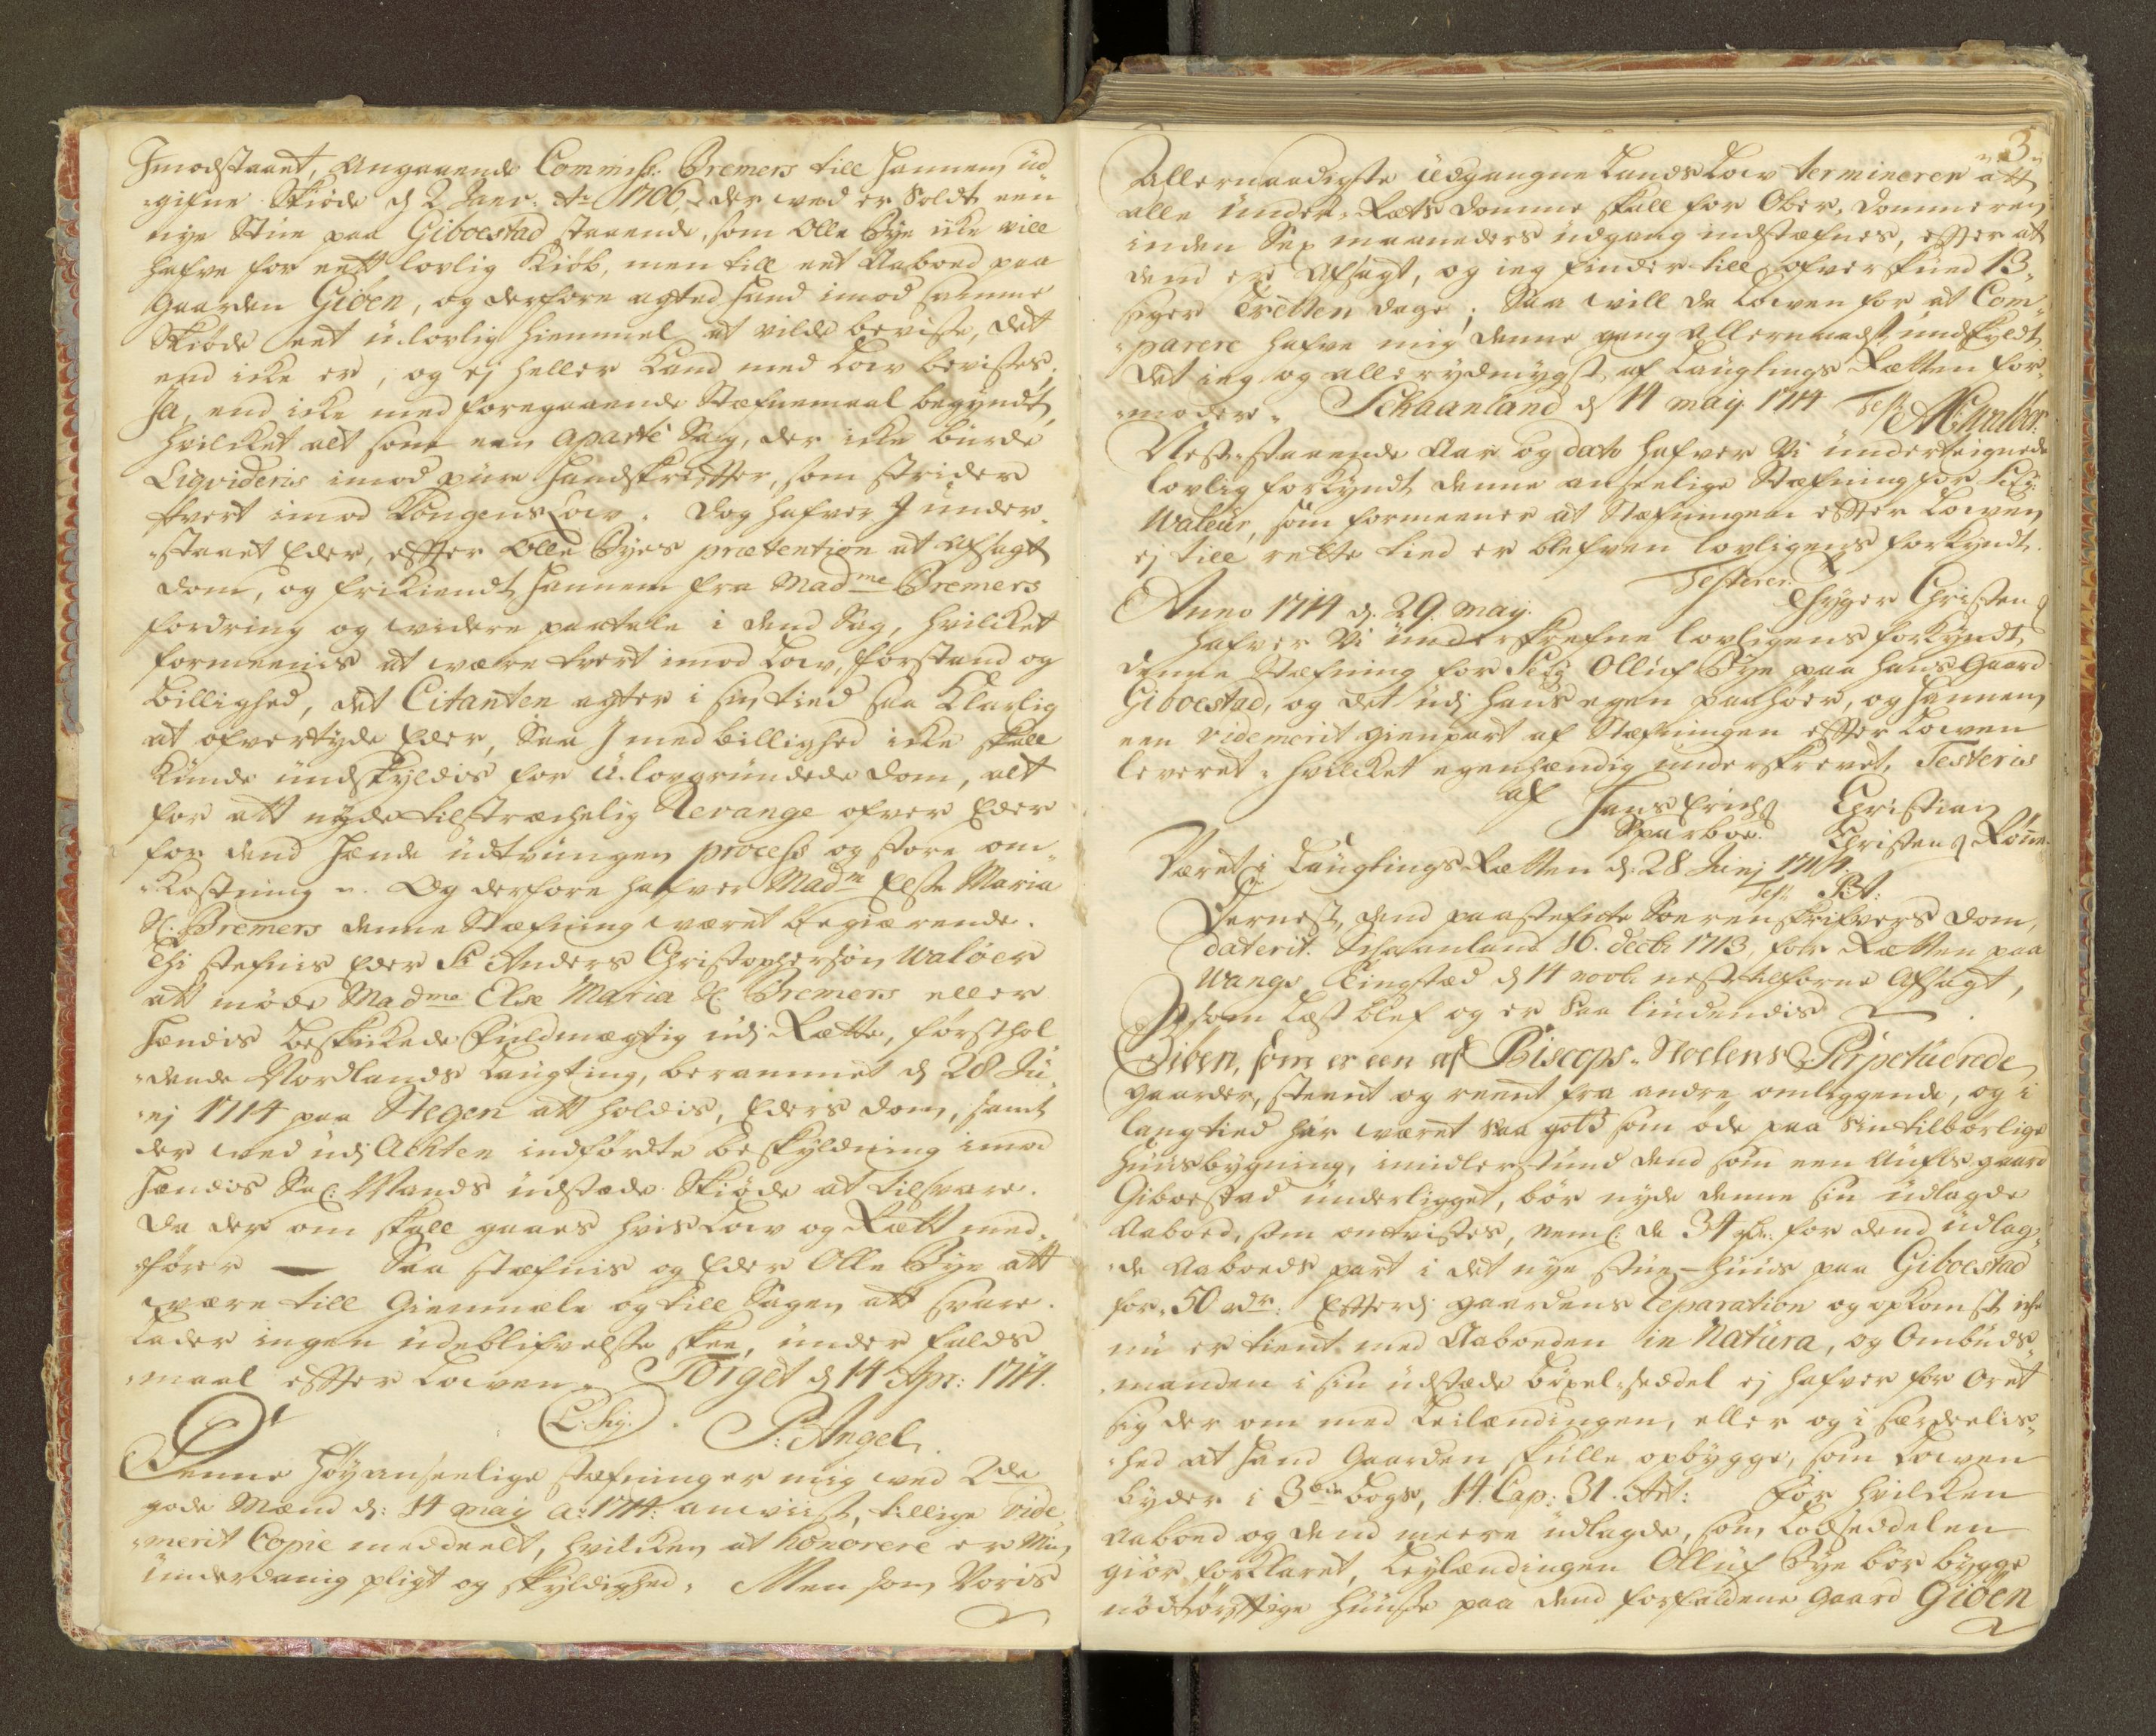 Imodstaaet, Angaaende Commiss: Bremers till hannem ud¬
gifne Skiøde d 2 Janr. Ao 1706, der ved er Soldt een
nye Stue paa Giboestad staaende, som Olle Bye icke vill
hafve for eett lovlig Kiøb, men till eet Aaboed paa
gaarden Giben, og derfore agted hand imod samme
Skiøde eet u-lovlig hiemmel at vilde beviise, det
end icke er, og ej heller kand med Low bevises,
Ja, end icke med foregaaende Stefnemaal begyndt,
hvilcket alt som een aparte Sag, der icke burde
Liqvideris imod pure handskriffter, som strider
tvert imod Kongens Low. Dog hafver I under¬
staaet Eder, effter Olle Byes prætention at afsagt
dom, og frikiendt hannem fra Madme Bremers
fordring og widere paatale i dend Sag, hvilcket
formeenis at være tvert imod Low, forstand og
billighed, det Citanten agter i sin tiid saa klarlig
at ofvertyde Eder, Saa I med billighed icke skall
kunde undskyldis for U-lovgrundede dom, alt
for att nyde tilstræchelig Revange ofver Eder
for dend hende udtvungen process og store om¬
kostning. Og derfore hafver Madme Else Maria
Sl. Bremers denne Stefning været begiærende.
Thi stefnis Eder Sr Anders Christophersøn Waløer
att møde Madme Else Maria Sl. Bremers eller
hendis beskickede fuldmægtig udj Rette, førsthol¬
dende Nordlands Laugting, berammet d 28 Ju¬
nj 1714 paa Stegen att holdis, Eders dom, samt
der ved udj Achten indførdte beskyldning imod
hendis Sal: Mands udstæde Skiøde at tilsvare.
da der om skall gaaes hvis Low og Rett med¬
fører — Saa stefnis og Eder Olle Bye att
være till Giemmæle og till Sagen att svare.
Lader ingen udeblifvelse skee, under falds¬
maal effter Lowen. Torget d 14 Apr: 1714.
(L. Sig.) P: Angel.
Denne Høyanseelige stefning er mig ved 2de
gode Mænd d: 14 maij a: 1714: anviist, tillige vide¬
merit Copie meddeelt, hvilcken at honorere er Min
underdanig pligt og skyldighed, Men som Voris
3
Allernaadigste udgangne Lands Low terminerer att
alle Under-Rets domme skall for Ober-dommeren
inden Sex maaneders udgang indstefnes, effter at
dend er Afsagt, og ieg finder till ofverskud 13
siger Tretten dage; Saa vill da Lowen for at Com¬
parere hafve mig denne gang Allernaadst undskyldt,
det ieg og allerydmygst af Laugtings Retten for¬
moder. Schaanland d 14 maij 1714 Test
Nest-staaende Aar og dato hafver Vi underteignede
lovlig forkyndt denne anseelige Stefning for
Waleur, som formeener at Stefningen effter Lowen
ej till rette tiid er blefven lovligens forkyndt.
Testerer Thyger Christens
Anno 1714 d. 29. maij.
hafver Vi underskrefne lovligens forkyndt
denne Stefning for Olluf Bye paa hans Gaard
Giboestad, og det udj hans egen paahør, og hannem
een videmerit gienpart af Stefningen effter Lowen
leveret. hvilcket egenhændig underskrevet, Testeris
af Hans Erichs Christian
Sparboe. Christens Rønne.
Været i Laugtings Retten d. 28 Junj 1714.
Test P:A:
Dernest, dend paastefnte Sorenskrifvers dom,
daterit. Schaanland 16. decb 1713, for Retten paa
Wangs Tingsted d 14 novb. nest tilforne Afsagt,
som Læst blef og er saa liudendis
Giben, som er een af Biscops-Stoelens Perpetuerede
gaarder, steent og reent fra andre omliggende, og i
lang tiid har været saa got som øde paa sin tilbørlige
huusbygning, imidlerstund dend som een Aufls gaard
Giboestad underligget, bør nyde denne sin udlagde
Aaboed, som omtvistes, neml: de 34 rdr. for dend udlag¬
de Aaboeds part i det nye stue-huus paa Giboestad
for 50 rdr: Effterdj gaardens reparation og opkomst icke
nu er tient med Aaboeden in Natura, og Ombuds¬
manden i sin udstæde bøxel-seddel ej hafver for Oret
sig der om med Leilændingen, eller og i særdeelis¬
hed at hand gaarden skulle opbygge, som Lowen
byder i 3die bogs, 14. Cap: 31. Art: for hvilcken
Aaboed og dend meere udlagde, som Lodseddelen
giør forklaret, Leylændingen Olluf Bye bør bygge
nødtørfftige huuse paa dend forfaldene gaard Giben